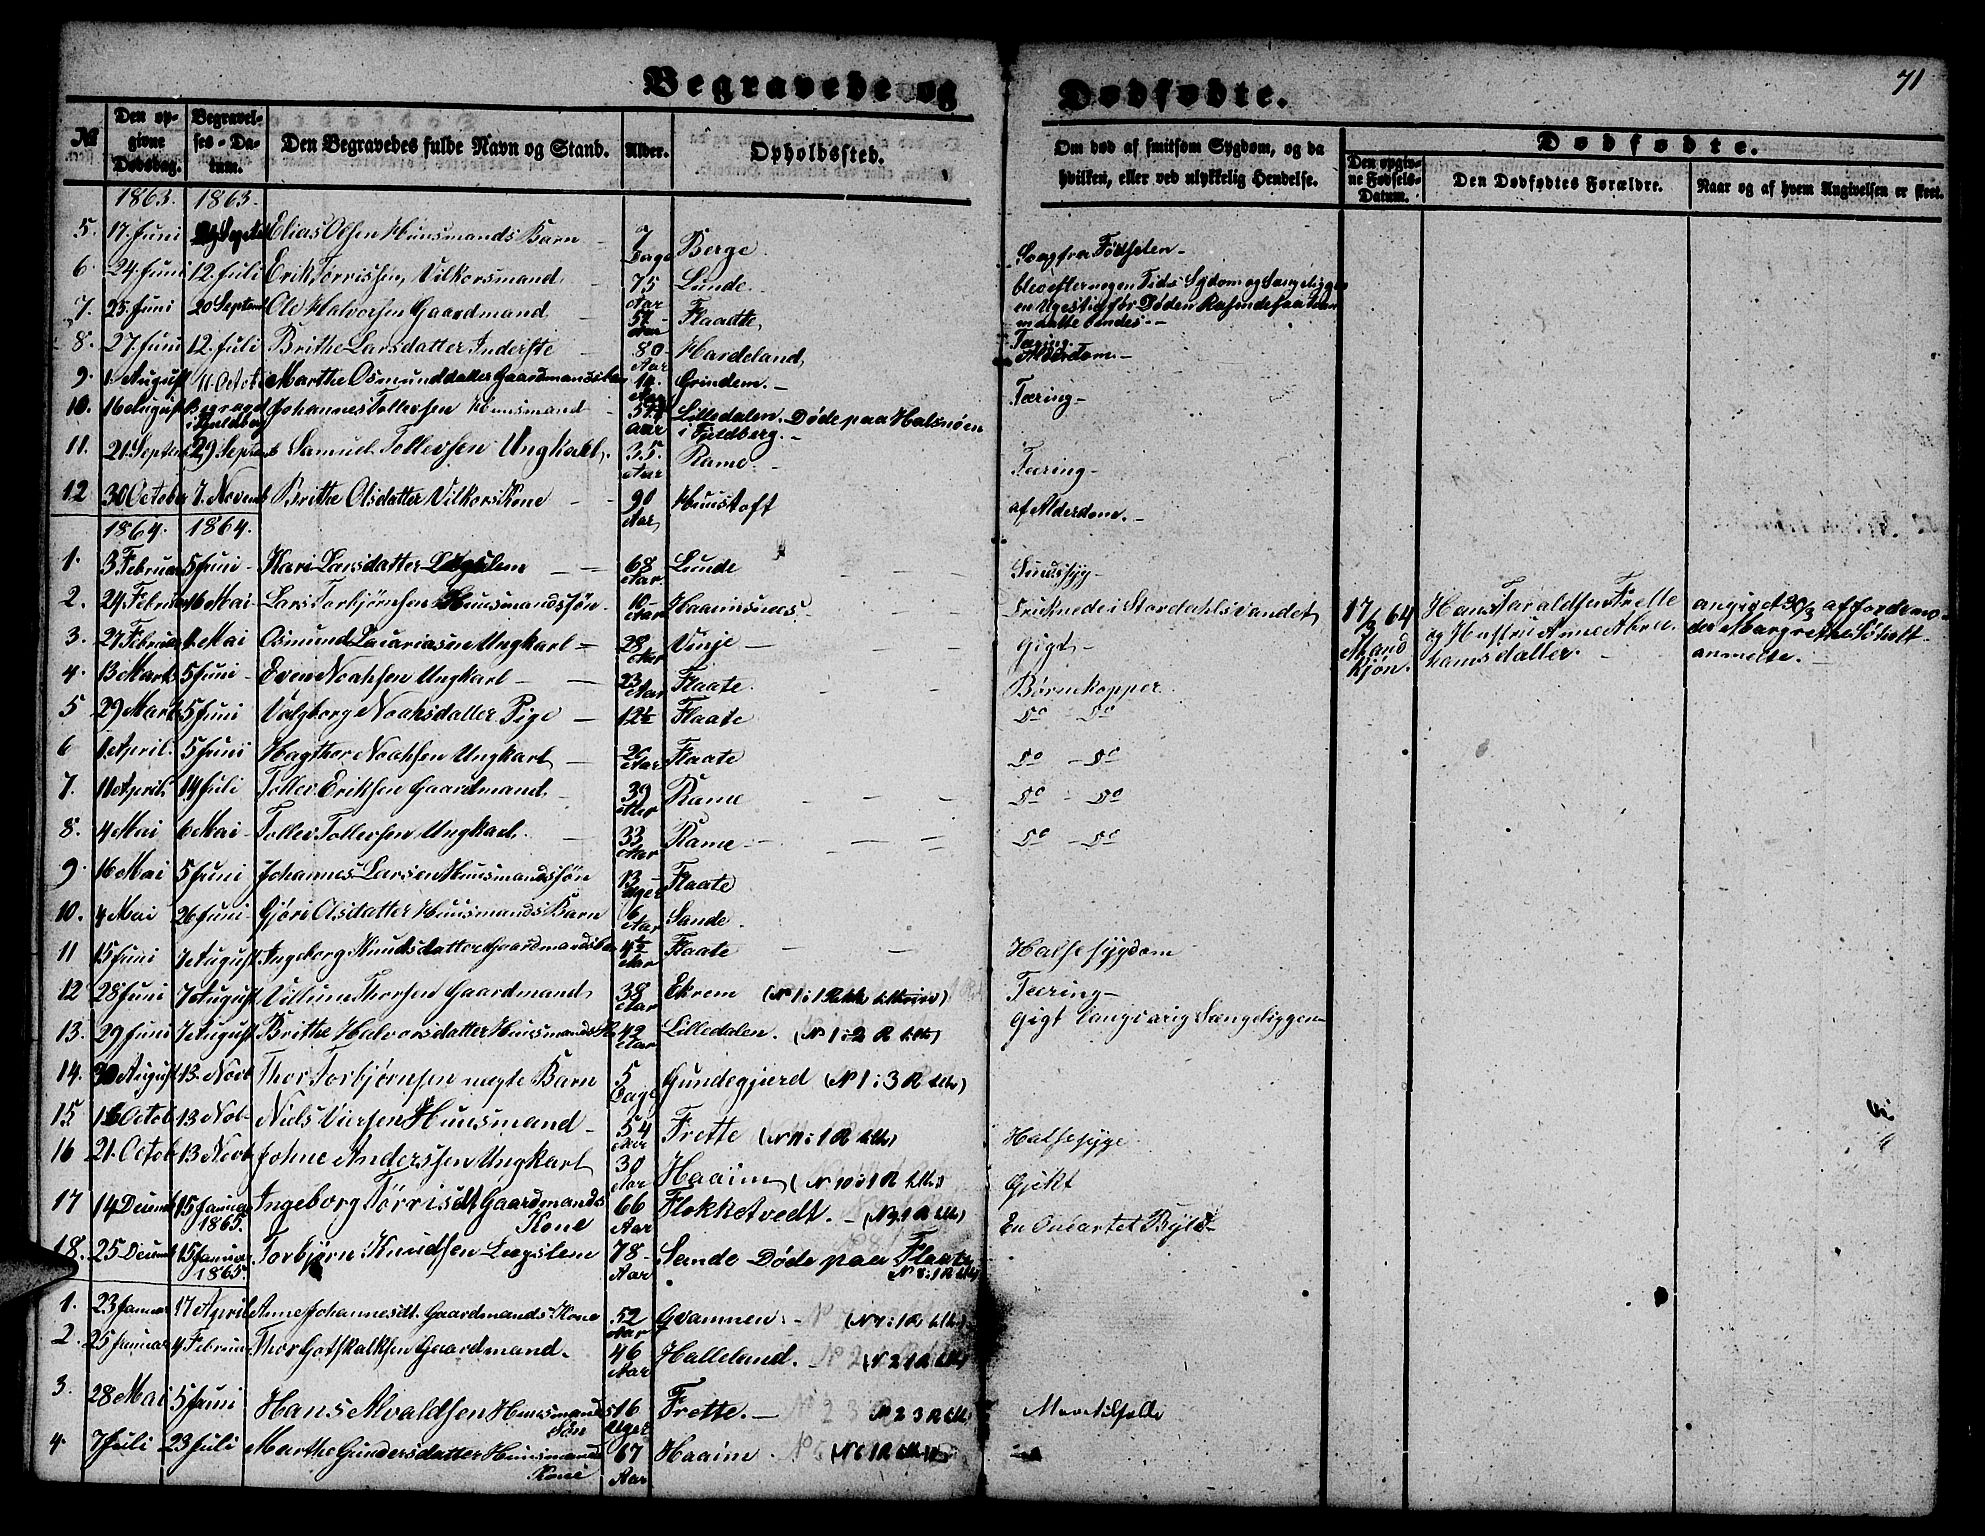 71
Begravede og Dødfødte.
№ | Den opgivne Dødsdag. | Begravelses-Datum. | Den Begravedes fulde Navn og Stand. | Alder. | Opholdssted. | Om død af smitsom Sygdom, og da hvilken, eller ved ulykkelig Hendelse. | Dødfødte. | Den opgivne Fødsels-Datum. | Den Dødfødtes Forældre. | Naar og af hvem Angivelsen er skeet.
1863. 1863.
5. 17. Juni Elias Olsen Huusmands Barn 7 Dage Berge Svag fra Fødselen
6. 24. Juni 12. Juli Erik Tørrissen, Vilkorsmand 75 Aar Lunde
7. 25. Juni 20 Septemb Ole Halvorsen Gaardmand 57 Aar Flaatte Tæring
8. 27. Juni 12. Juli Brithe Larsdatter Inderste 80 Aar Hardeland Alderdom
9. 1. August 11 Octob Marthe Osmunddatter Gaardmands 14 Aar Grindem Tæring
10. 16 August Begravd i Fjeldberg Johannes Tollevsen Huusmand 57½ aar Lilledalen. Døde paa Halsnøen i Fjeldberg.
11. 21 Septemb 29 Septemb Samuel Tollevsen Ungkarl. 35. Aar Rame Tæring
12 30 October 1. Novemb Brithe Olsdatter Vilkors Kone 90 Aar Huustoft af Alderdom.
1864. 1864.
1. 3 Februar 5 Juni Kari Larsdatter Lægslem 68 Aar Lunde
2. 24. Februar 16 Mai Lars Torbjørnsen Huusmandssøn 10 Aar Haaimsnees Druknede i Stordalsvandet 17/3 64 Mand Kjøn. Hans Taraldsen Frette og Hustru Anne Abrahamsdatter. angivet 30/3 af Jordemoder Margrethe
3. 27 Februar 1 Mai Osmund Ungkarl 28 Aar Vinje Gigt
4. 13 Marts 5 Juni Even Noahsen Ungkarl 23 Aar Flaate Børnekopper
5 29 Marts 5 Juni Valgborg Noahsdatter Pige 12½ Flaate Do Do
6 1 April. 5 Juni Hagthor Noahsen Ungkarl 20 Aar Flaate Do Do
7. 11 April 14 Juli Tollev Eriksen Gaardmand 39 Aar Rame Do Do
8. 4 Mai 6 Mai Tollev Tollevsen Ungkarl. 33 Aar Rame Do Do
9. 16 Mai 5 Juni Johannes Larsen Huusmandssøn 13 Uger Flaate
10. 4 Mai 26 Juni Gjøri Olsdatter Huusmands Barn 6 Aar Sande
11 15 Juni 7 August Ingeborg Knudsdatter Gaardmands 4½ Aar Flaate Halsesygdom
12 28 Juni 7 August Villum Thorsen Gaardmand 38 Aar Ekrem Tæring
13. 29 Juni 7 August Brithe Halvorsdatter Huusmands 42 Aar Lilledalen. (N 1: 2 R Gigt langvarig Sængeliggen
14. 30 August 13. Novb Thor Torbjørnsen uægte Barn 5 Dage Gundegjerd (N 1: 3 R
15 16 Octob 13 Nov Niels Huusmand 54 Aar Frette Halsesyge
16 21. Octob 13 Novb Johne Anderssen Ungkarl 30 Aar Haaim (N 10: 1 R Gjikt
17 14 Decemb 15 Januar 1865. Ingeborg Tørrisdt Gaardmands Kone 66 Aar Flokketvedt. En Byld
18. 25 Decemb 15 Januar 1865. Torbjørn Knudsen Lægslem 78 Aar Sande Døde paa Flaate
1. 23 Januar 17 April Ane Johannesdt. Gaardmands Kone 52 Aar Qvamnen
2. 25 Januar 4 Februar Thor Gotskalksen Gaardmand. 46 Aar Halleland. (N 2 1 R
3. 28 Mai 5 Juni Hans Alvaldsen Huusmands Søn 16 Uger Frette. N 2 3 R
4. 7 Juli 23 Juli Marthe Gundersdatter Huusmands Kone 67 Aar Haaim (N 6 1 R